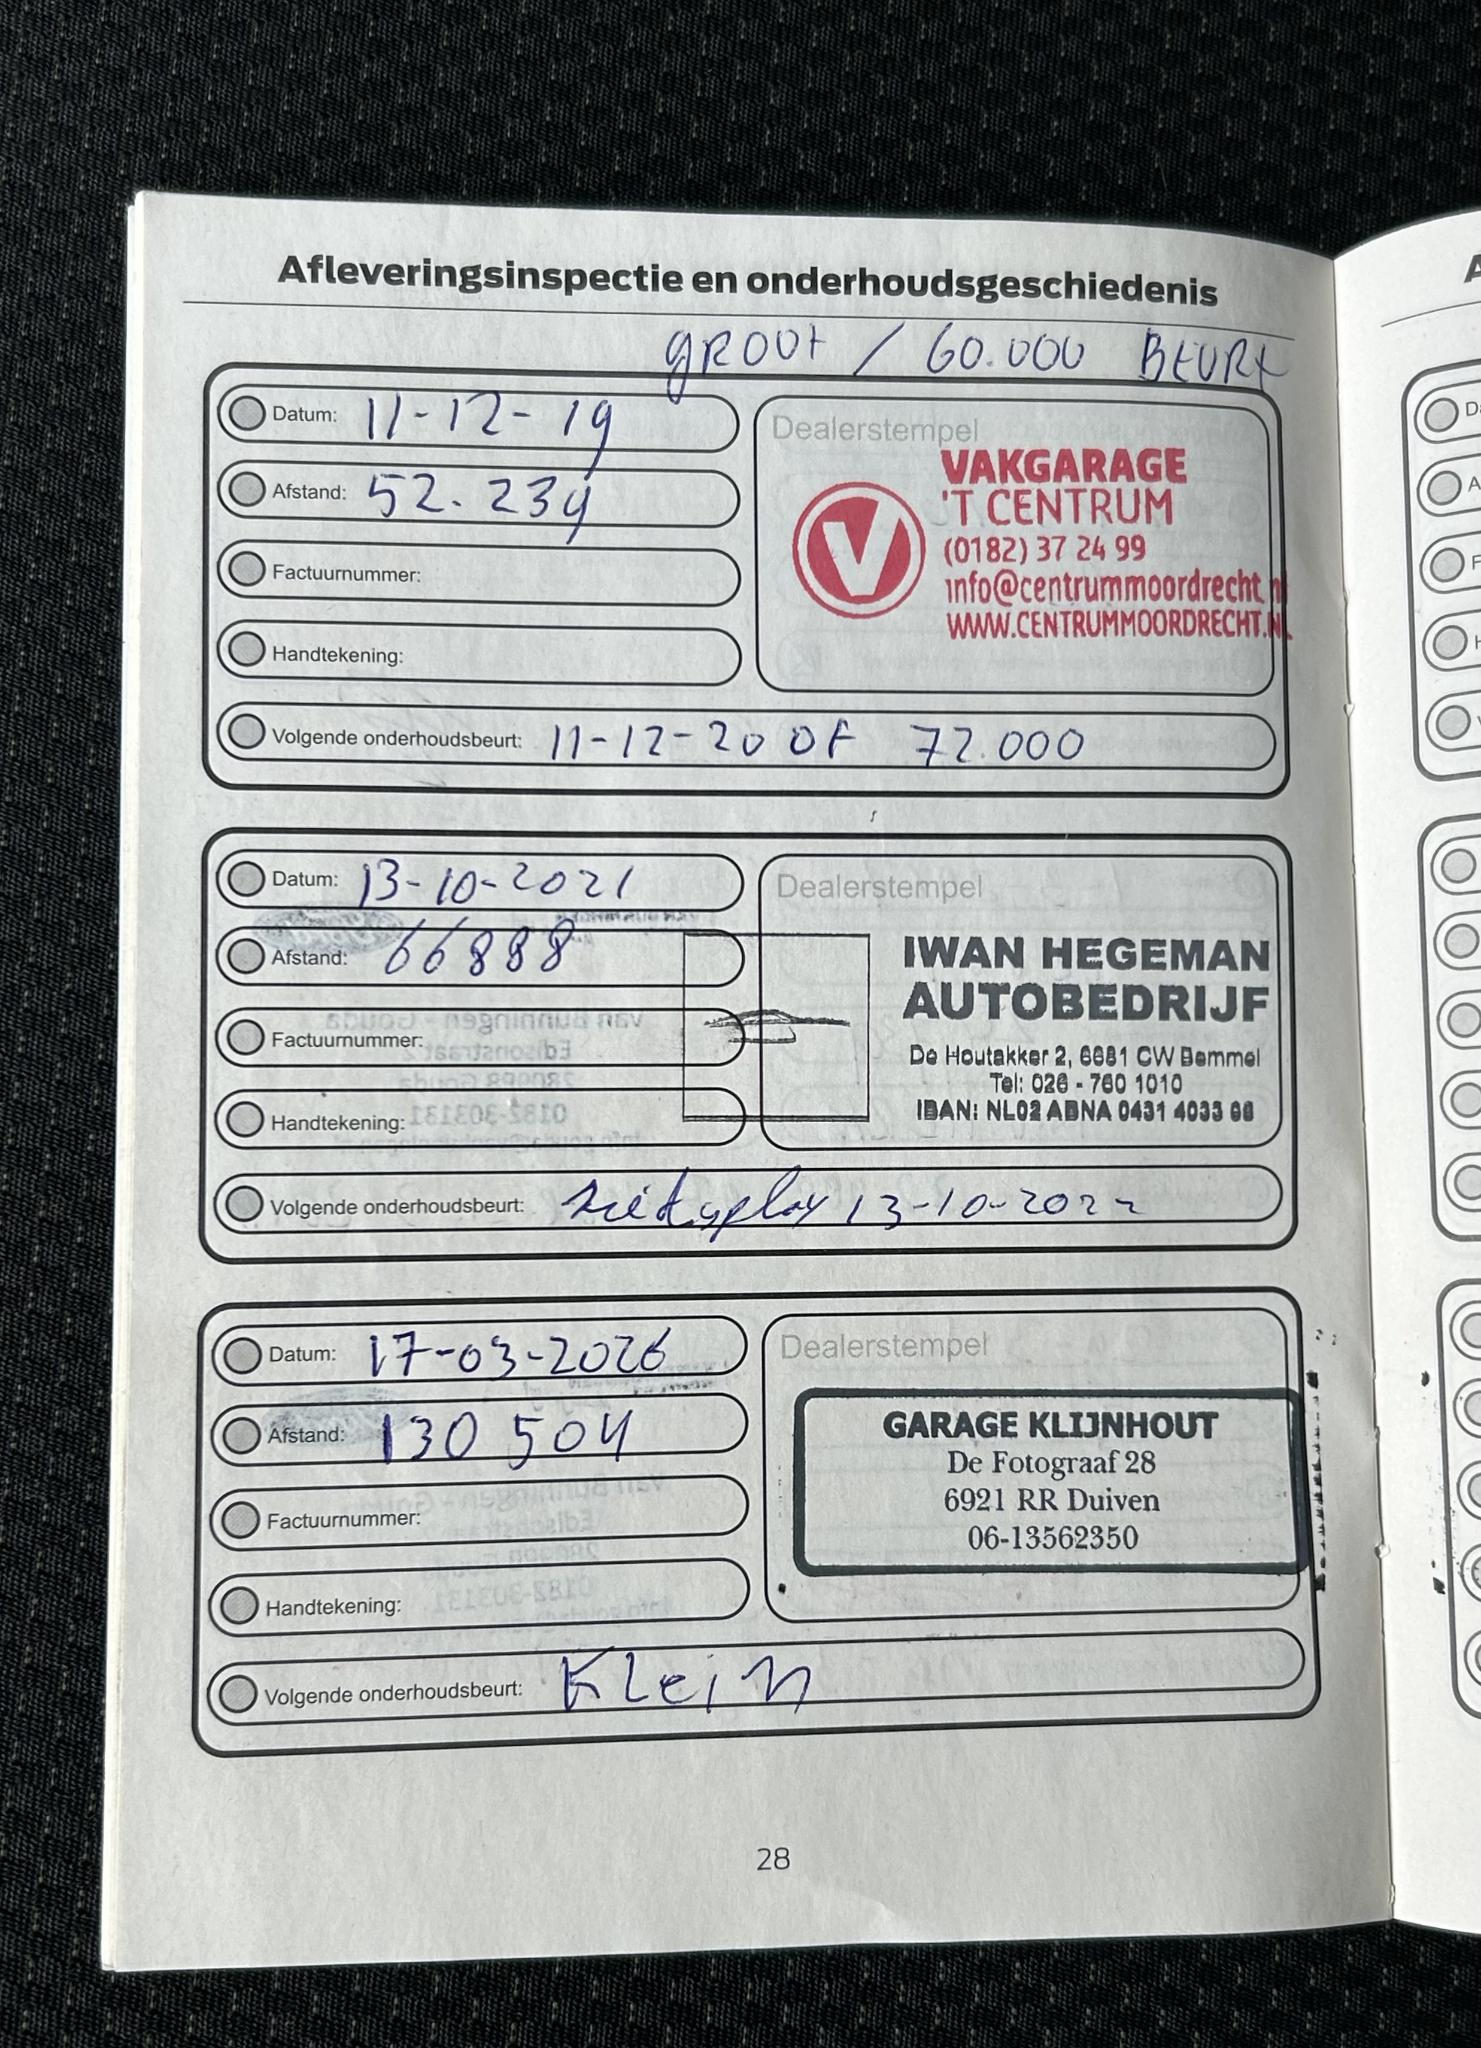 Afleveringsinspectie en onderhoudsgeschiedenis
GROOT / 60.000 BEURT
Datum: 11-12-19
Afstand: 52.234
Factuurnummer:
Handtekening:
Volgende onderhoudsbeurt: 11-12-20 OF 72.000
Dealerstempel
VAKGARAGE
'T CENTRUM
(0182) 37 24 99
info@centrummoordrecht.nl
WWW.CENTRUMMOORDRECHT.NL
Datum: 13-10-2021
Afstand: 66888
Factuurnummer:
Handtekening:
Volgende onderhoudsbeurt: zie display 13-10-2022
Dealerstempel
IWAN HEGEMAN
AUTOBEDRIJF
De Houtakker 2, 6681 CW Bemmel
Tel: 026 - 760 1010
IBAN: NL02 ABNA 0431 4033 66
Datum: 17-03-2026
Afstand: 130 504
Factuurnummer:
Handtekening:
Volgende onderhoudsbeurt: Klein
Dealerstempel
GARAGE KLIJNHOUT
De Fotograaf 28
6921 RR Duiven
06-13562350
28